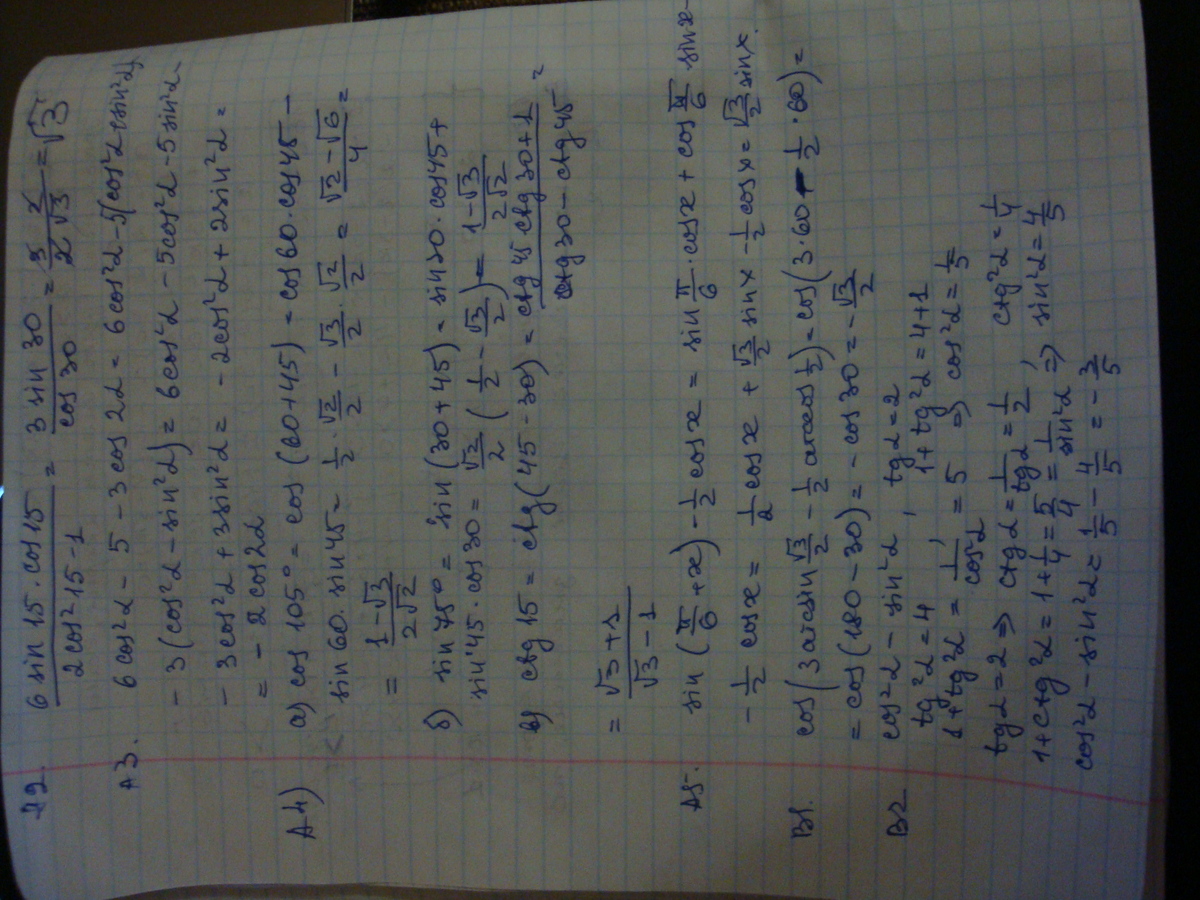 А2. 6 sin 15 · cos 15 / 2cos²15-1 = 3 sin 30 / cos 30 = 3 · 2 / 2 √3 = √3
А3. 6 cos²α - 5 - 3 cos 2α = 6cos²α - 5(cos²α+sin²α)
- 3(cos²α - sin²α) = 6cos²α - 5cos²α - 5sin²α -
- 3cos²α + 3sin²α = - 2cos²α + 2sin²α =
= - 2 cos 2α
А4) а) cos 105° = cos (60+45) = cos 60 · cos 45 -
sin 60 · sin 45 = 1/2 · √2/2 - √3/2 · √2/2 = √2 - √6 / 4 =
= 1-√3 / 2√2
б) sin 75° = sin (30+45) = sin 30 · cos 45 +
sin 45 · cos 30 = √2/2 (1/2 - √3/2) = 1-√3 / 2√2
в) ctg 15 = ctg (45 - 30) = ctg 45 ctg 30 + 1 / ctg 30 - ctg 45 =
= √3+1 / √3-1
А5. sin (π/6 + x) - 1/2 cos x = sin π/6 · cos x + cos π/6 sin x -
- 1/2 cos x = 1/2 cos x + √3/2 sin x - 1/2 cos x = √3/2 sin x.
В1. cos (3 arcsin √3/2 - 1/2 arccos 1/2) = cos (3·60 - 1/2 · 60) =
= cos (180 - 30) = - cos 30 = - √3/2
В2 cos²α - sin²α, tg α = 2
tg²α = 4, 1 + tg²α = 4+1
1 + tg²α = 1/cos²α = 5 ⇒ cos²α = 1/5
tg α = 2 ⇒ ctg α = 1/tg α = 1/2, ctg²α = 1/4
1 + ctg²α = 1 + 1/4 = 5/4 = 1/sin²α ⇒ sin²α = 4/5
cos²α - sin²α = 1/5 - 4/5 = - 3/5